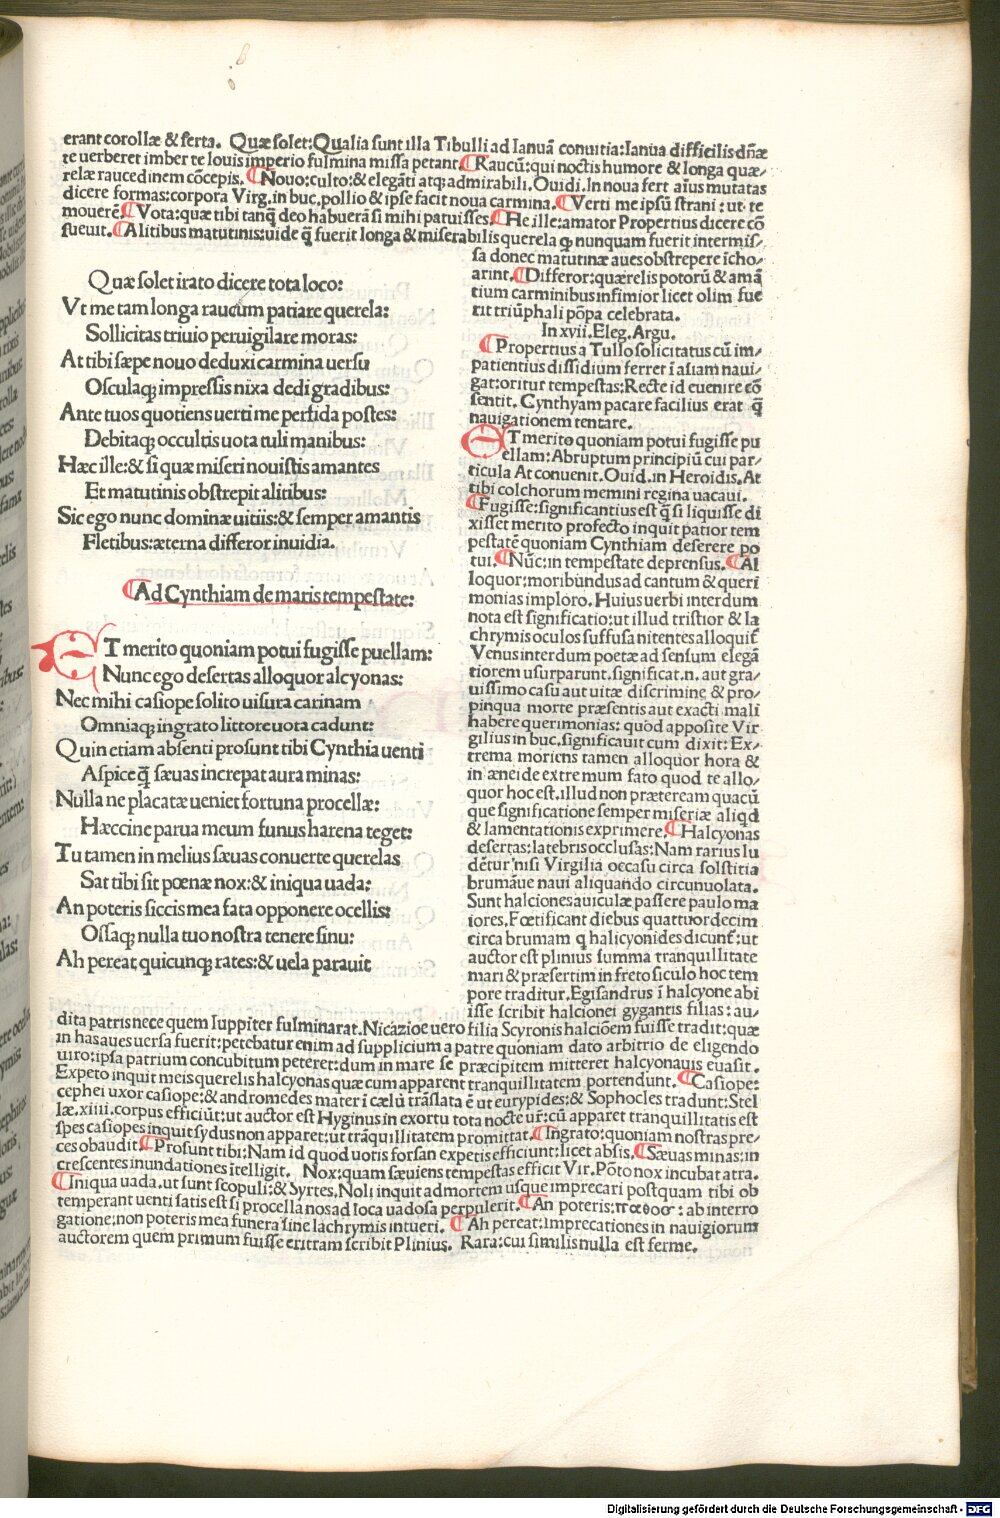 erant corollæ & serta. Quæ solet: Qualia sunt illa Tibulli ad Ianuā conuitia: Ianua difficilis dñæ
te uerberet imber te Iouis imperio fulmina missa petant. ¶Raucū: qui noctis humore & longa quæ-
relæ raucedinem cōcepis. ¶Nouo: culto: & elegāti atq; admirabili. Ouidi. In noua fert aius mutatas
dicere formas: corpora Virg. in buc. pollio & ipse facit noua carmina. ¶Verti me ipsū strani: ut te
mouerē. ¶Vota: quæ tibi tanq̄ deo habuerā si mihi patuisses. ¶He ille: amator Propertius dicere cō
sueuit. ¶Alitibus matutinis: uide q̄ fuerit longa & miserabilis querela ꝙ nunquam fuerit intermis-
sa donec matutinæ aues obstrepere īcho-
arint. ¶Differor: quærelis potorū & amā
tium carminibus infimior licet olim fue
rit triūphali pōpa celebrata.
In xvii. Eleg. Argu.
¶Propertius a Tullo solicitatus cū im-
patientius dissidium ferret ī asiam naui-
gat: oritur tempestas: Recte id euenire cō
sentit. Cynthyam pacare facilius erat q̄
nauigationem tentare.
ET merito quoniam potui fugisse pu
ellam: Abruptum principiū cui par-
ticula At conuenit. Ouid. in Heroidis. At
tibi colchorum memini regina uacaui.
¶Fugisse: significantius est q̄ si liquisse di
xisset merito profecto inquit patior tem
pestatē quoniam Cynthiam deserere po
tui. ¶Nūc: in tempestate deprensus. ¶Al
loquor: moribūndus ad cantum & queri
monias imploro. Huius uerbi interdum
nota est significatio: ut illud tristior & la
chrymis oculos suffusa nitentes alloquit̄
Venus interdum poetæ ad sensum elegā
tiorem usurparunt. significat. n. aut gra-
uissimo casu aut uitæ discrimine & pro-
pinqua morte præsentis aut exacti mali
habere querimonias: quod apposite Vir
gilius in buc. significauit cum dixit: Ex-
trema moriens tamen alloquor hora &
in æneide extremum fato quod te allo-
quor hoc est. illud non præteream quacū
que significatione semper miseriæ aliqd
& lamentationis exprimere. ¶Halcyonas
desertas: latebris occlusas: Nam rarius lu
dētur nisi Virgilia occasu circa solstitia
brumāue naui aliquando circunuolata.
Sunt halciones auiculæ passere paulo ma
iores. Fœtificant diebus quattuordecim
circa brumam q halicyonides dicunt̄: ut
auctor est plinius summa tranquillitate
mari & præsertim in freto siculo hoc tem
pore traditur. Egisandrus ī halcyone abi
isse scribit halcionei gygantis filias: au-
Quæ solet irato dicere tota loco:
Vt me tam longa raucum patiare querela:
Sollicitas triuio peruigilare moras:
At tibi sæpe nouo deduxi carmina uersu
Osculaq; impressis nixa dedi gradibus:
Ante tuos quotiens uerti me perfida postes:
Debitaq; occultis uota tuli manibus:
Hæc ille: & si quæ miseri nouistis amantes
Et matutinis obstrepit alitibus:
Sic ego nunc dominæ uitiis: & semper amantis
Fletibus: æterna differor inuidia.
¶Ad Cynthiam de maris tempestate:
ET merito quoniam potui fugisse puellam:
Nunc ego desertas alloquor alcyonas:
Nec mihi casiope solito uisura carinam
Omniaq; ingrato littore uota cadunt:
Quin etiam absenti prosunt tibi Cynthia uenti
Aspice q̄ sæuas increpat aura minas:
Nulla ne placatæ ueniet fortuna procellæ:
Hæccine parua meum funus harena teget:
Tu tamen in melius sæuas conuerte querelas
Sat tibi sit pœnæ nox: & iniqua uada:
An poteris siccis mea fata opponere ocellis:
Ossaq; nulla tuo nostra tenere sinu:
Ah pereat quicunq; rates: & uela parauit
dita patris nece quem Iuppiter fulminarat. Nicazioe uero filia Scyronis halciōem fuisse tradit: quæ
in has aues uersa fuerit: petebatur enim ad supplicium a patre quoniam dato arbitrio de eligendo
uiro: ipsa patrium concubitum peteret: dum in mare se præcipitem mitteret halcyonauis euasit.
Expeto inquit meis querelis halcyonas quæ cum apparent tranquillitatem portendunt. ¶Casiope:
cephei uxor casiope: & andromedes mater ī cælū trāslata ē ut eurypides: & Sophocles tradunt: Stel
læ. xiiii. corpus efficiūt: ut auctor est Hyginus in exortu tota nocte ur̄: cū apparet tranquillitatis est
spes casiopes inquit sydus non apparet: ut trāquillitatem promittat. ¶Ingrato: quoniam nostras pre-
ces obaudit. ¶Prosunt tibi: Nam id quod uotis forsan expetis efficiunt: licet absis. ¶Sæuas minas: in
crescentes inundationes itelligit. Nox: quam sæuiens tempestas efficit Vir. Pōto nox incubat atra.
¶Iniqua uada. ut sunt scopuli: & Syrtes. Noli inquit ad mortem usque imprecari postquam tibi ob
temperant uenti satis est si procella nos ad loca uadosa perpulerit. ¶An poteris: παθος: ab interro
gatione: non poteris mea funera sine lachrymis intueri. ¶Ah pereat: Imprecationes in nauigiorum
auctorem quem primum fuisse eritram scribit Plinius. Rara: cui similis nulla est ferme.
Digitalisierung gefördert durch die Deutsche Forschungsgemeinschaft - DFG